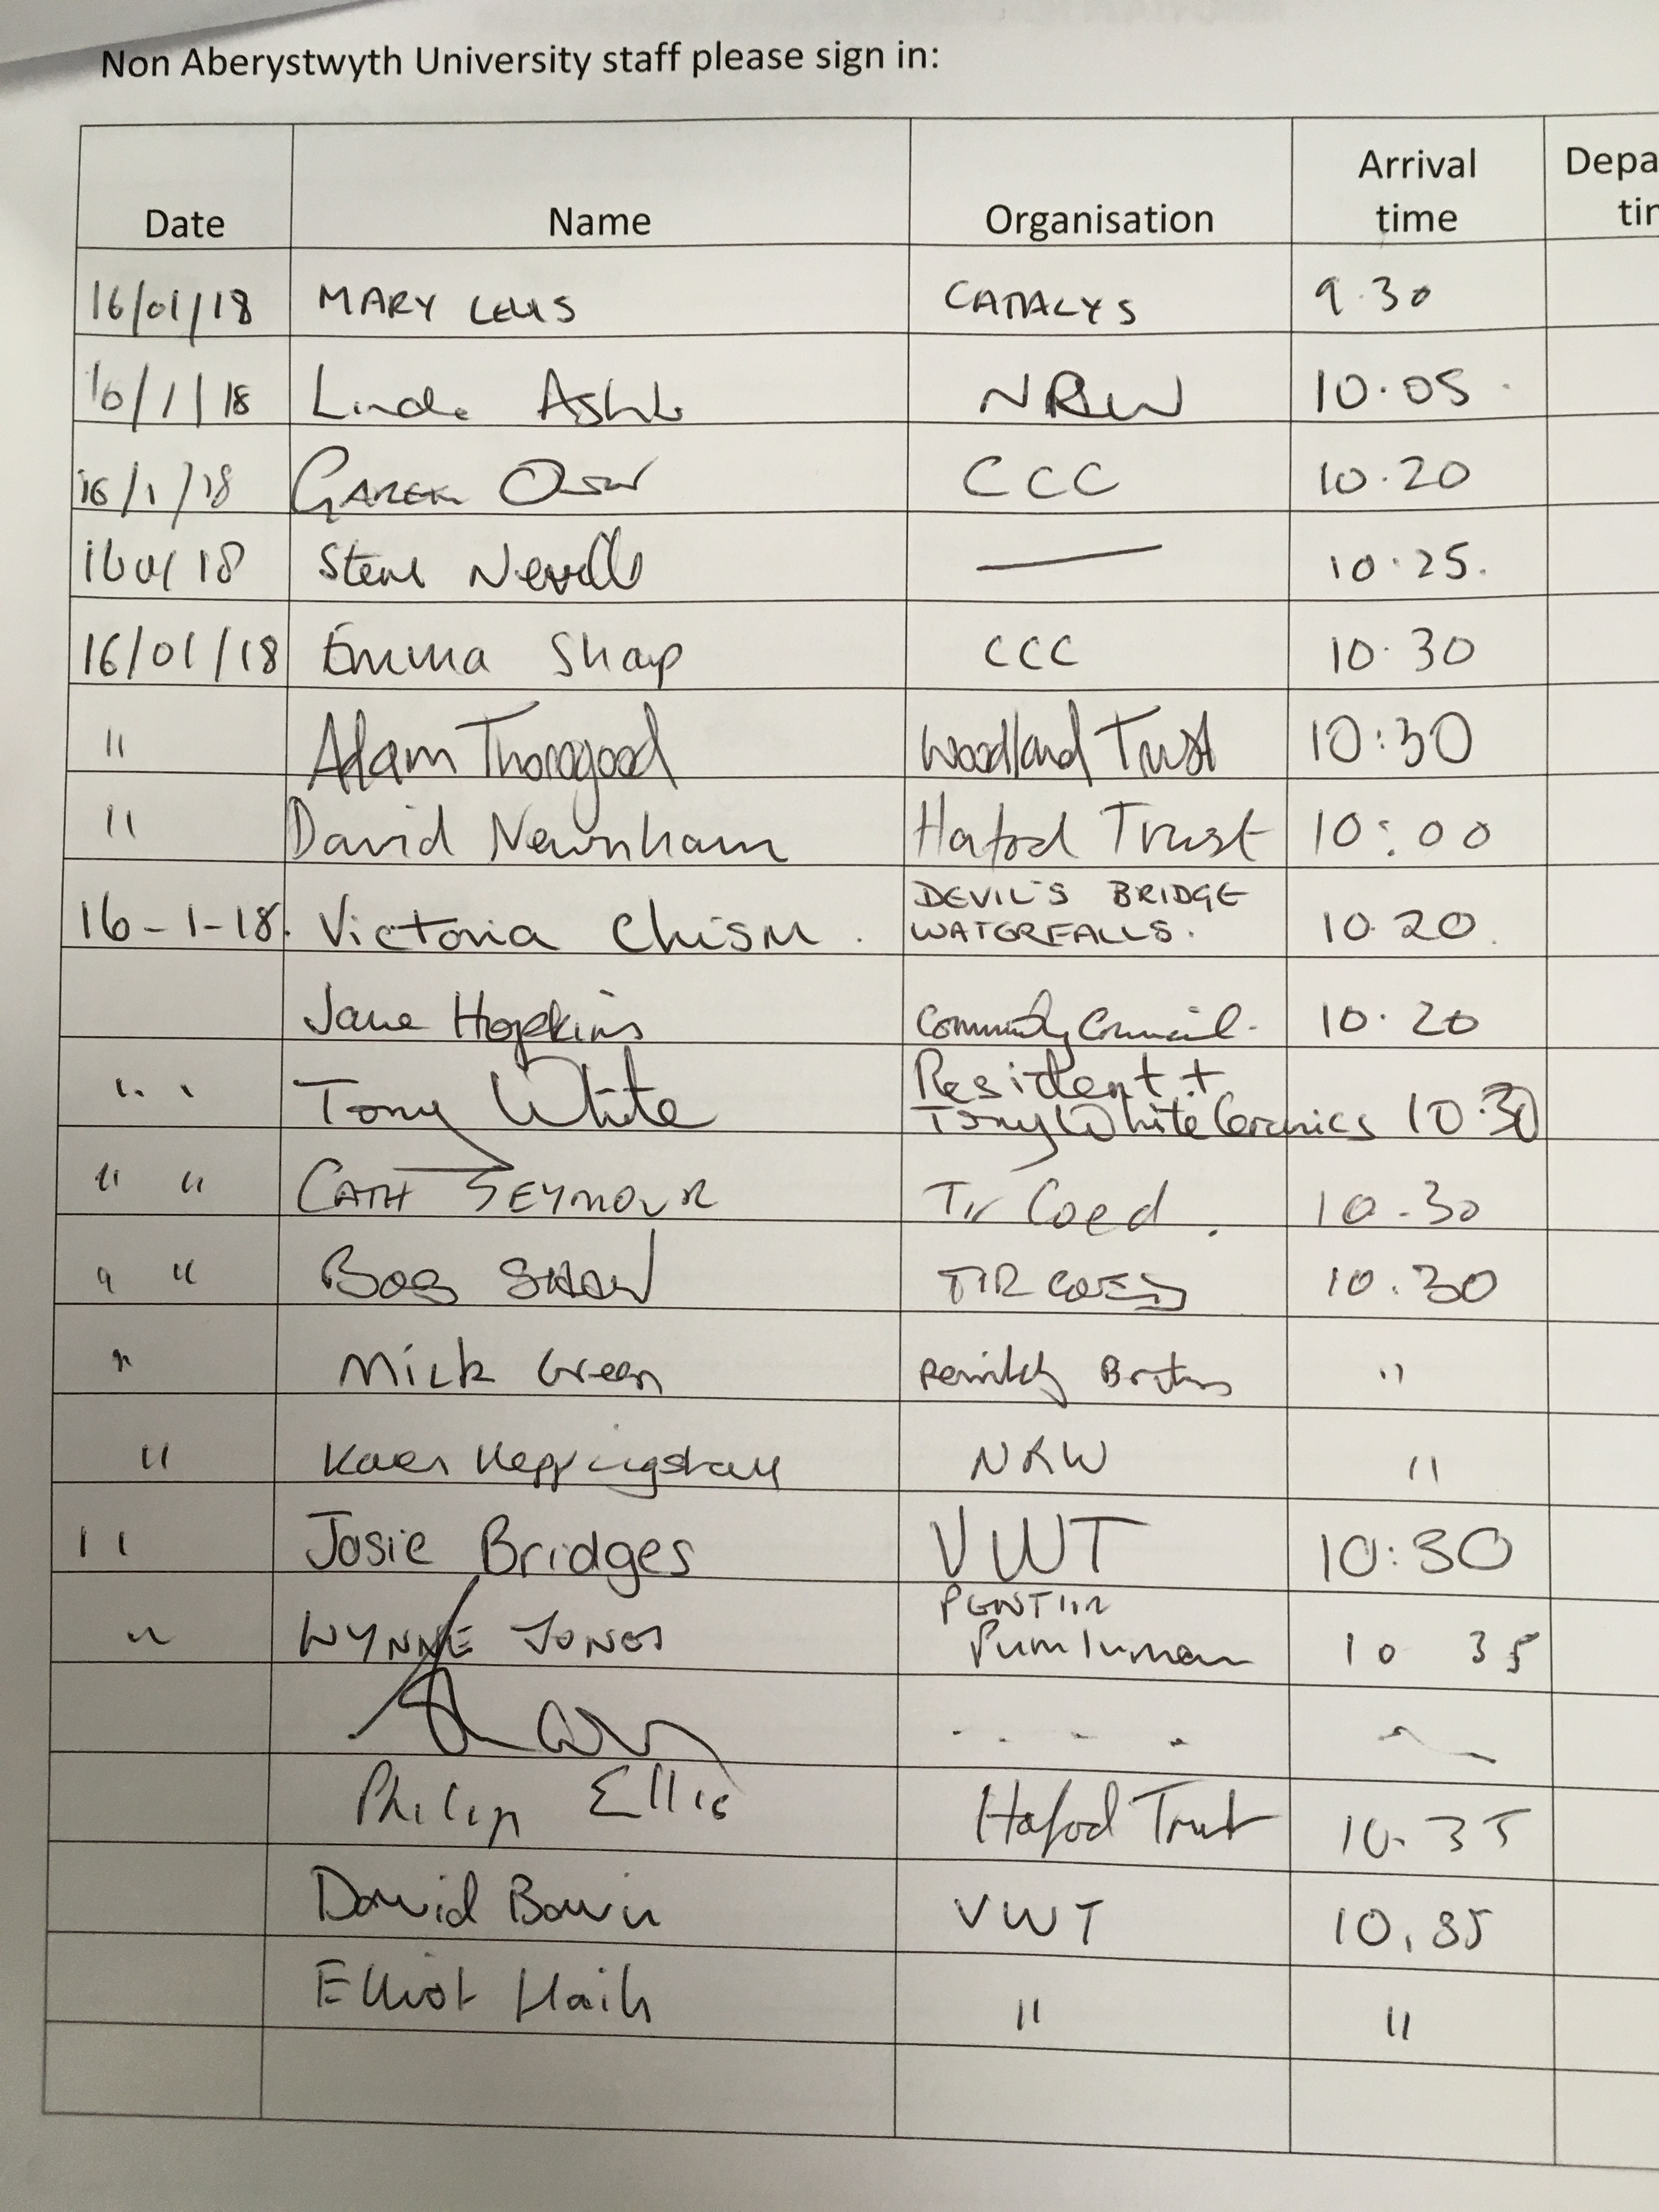 Non Aberystwyth University staff please sign in:
Date Name Organisation Arrival time Depa
tir
16/01/18 MARY LEWIS CATALYS 9.30
16/1/18 Linda NRW 10.05
16/1/18 CCC 10.20
18 Steve Nevill — 10.25.
16/01/18 Emma Sharp CCC 10.30
" Adam Thorogood Woodland Trust 10:30
" David Newnham Hafod Trust 10:00
16-1-18. Victoria Chism. DEVIL'S BRIDGE
WATERFALLS. 10.20.
Jane Hopkins Community Council. 10.20
" Tony White Resident +
Tony White Ceramics 10.30
" " CATH SEYMOUR Tir Coed. 10.30
" " BOB SHAW TIR COED 10.30
" Mick Green "
" NRW "
" Josie Bridges VWT 10:30
" WYNNE JONES PENTIR
Pumlumon 10 35
Philip Ellis Hafod Trust 10.35
David VWT 10.35
Elliot " "